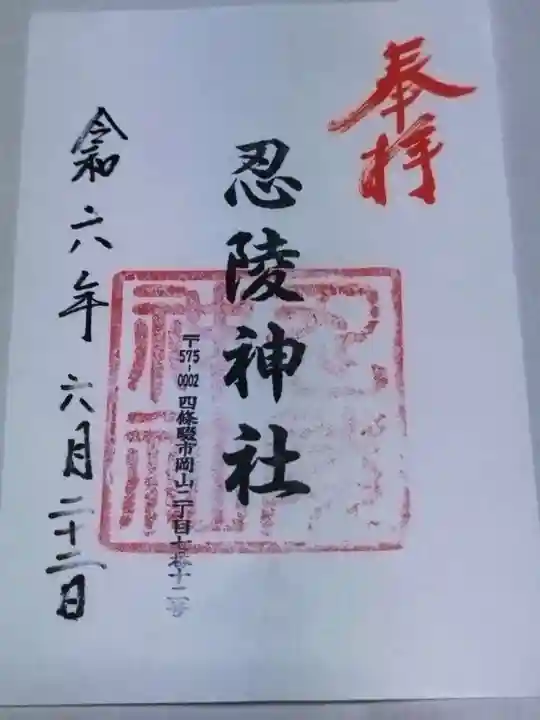 奉拝
忍陵神社
〒575-0002 四條畷市岡山二丁目七番十二号
令和六年六月二十二日